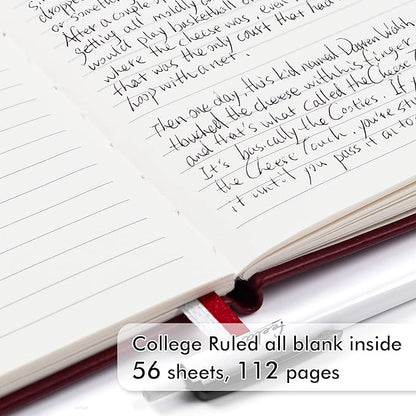 droppe
or somethin
After a couple
getting all mildly a
would play basketball o
where the cheese was, even
that was the only court that had
hoop with a net.
Then one day, this kid named Darren Wal
touched the cheese with his finger
and that's what called the Cheese
It's basically the Cooties. If
the Cheese Touch, you're st
it until you pass it on to
College Ruled all blank inside
56 sheets, 112 pages